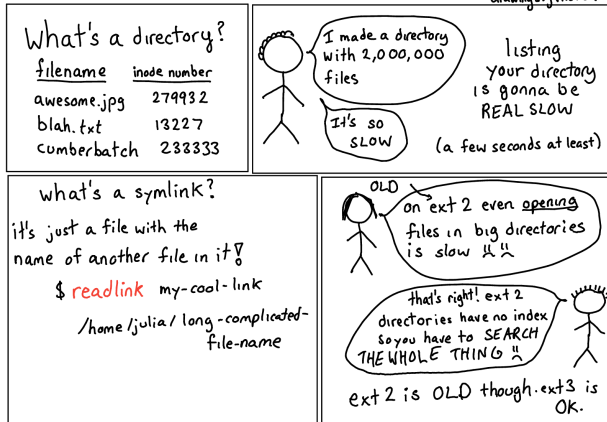 What's a directory?
filename inode number
awesome.jpg 279932
blah.txt 13227
cumberbatch 233333
I made a directory
with 2,000,000
files
It's so
SLOW
listing
your directory
is gonna be
REAL SLOW
(a few seconds at least)
what's a symlink?
it's just a file with the
name of another file in it!
$ readlink my-cool-link
/home/julia/long-complicated-
file-name
OLD
on ext2 even opening
files in big directories
is slow :( :(
that's right! ext2
directories have no index
so you have to SEARCH
THE WHOLE THING :(
ext2 is OLD though. ext3 is
OK.